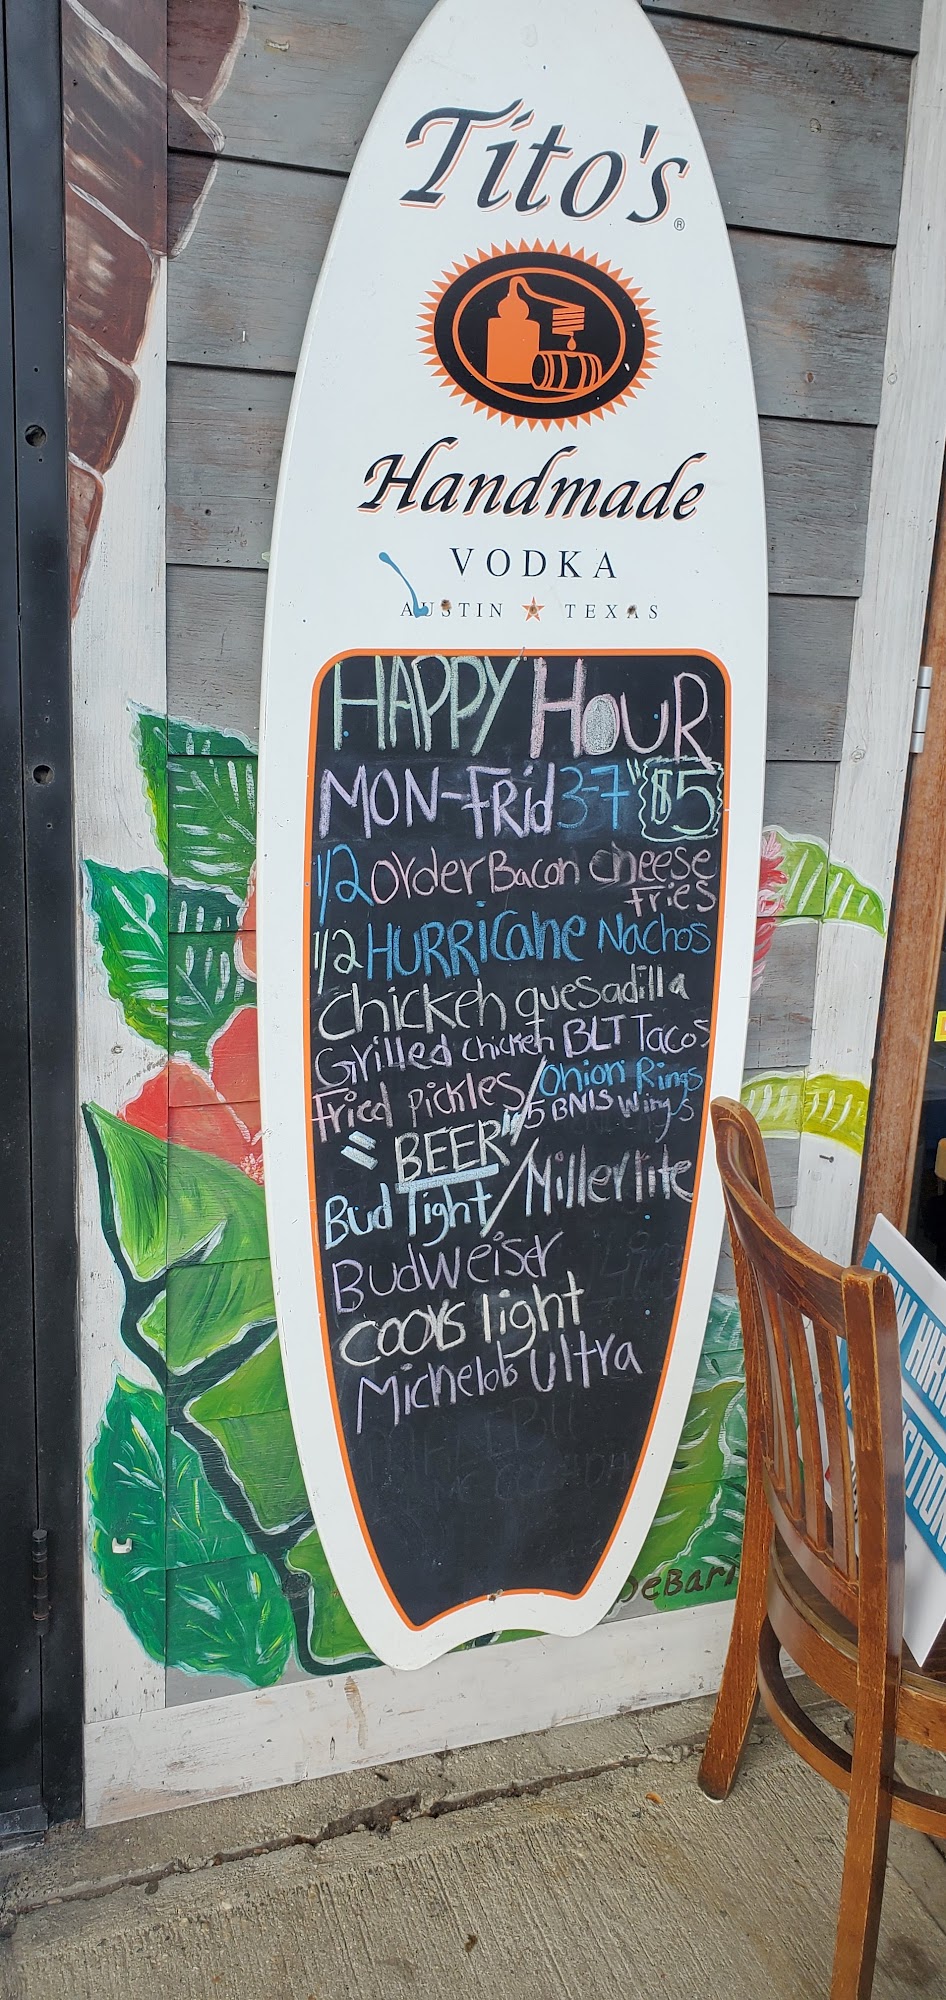 Tito's®
Handmade
VODKA
AUSTIN ★ TEXAS
HAPPY HOUR
MON-FRid 3-7" $5
1/2 Order Bacon cheese
Fries
1/2 HURRiCane Nachos
Chicken quesadilla
Grilled chicken BLT Tacos
Fried pickles / Onion Rings
5 BNIS Wings
"BEER"
Bud light / Miller lite
Budweiser
COORS light
Michelob ultra
DeBari